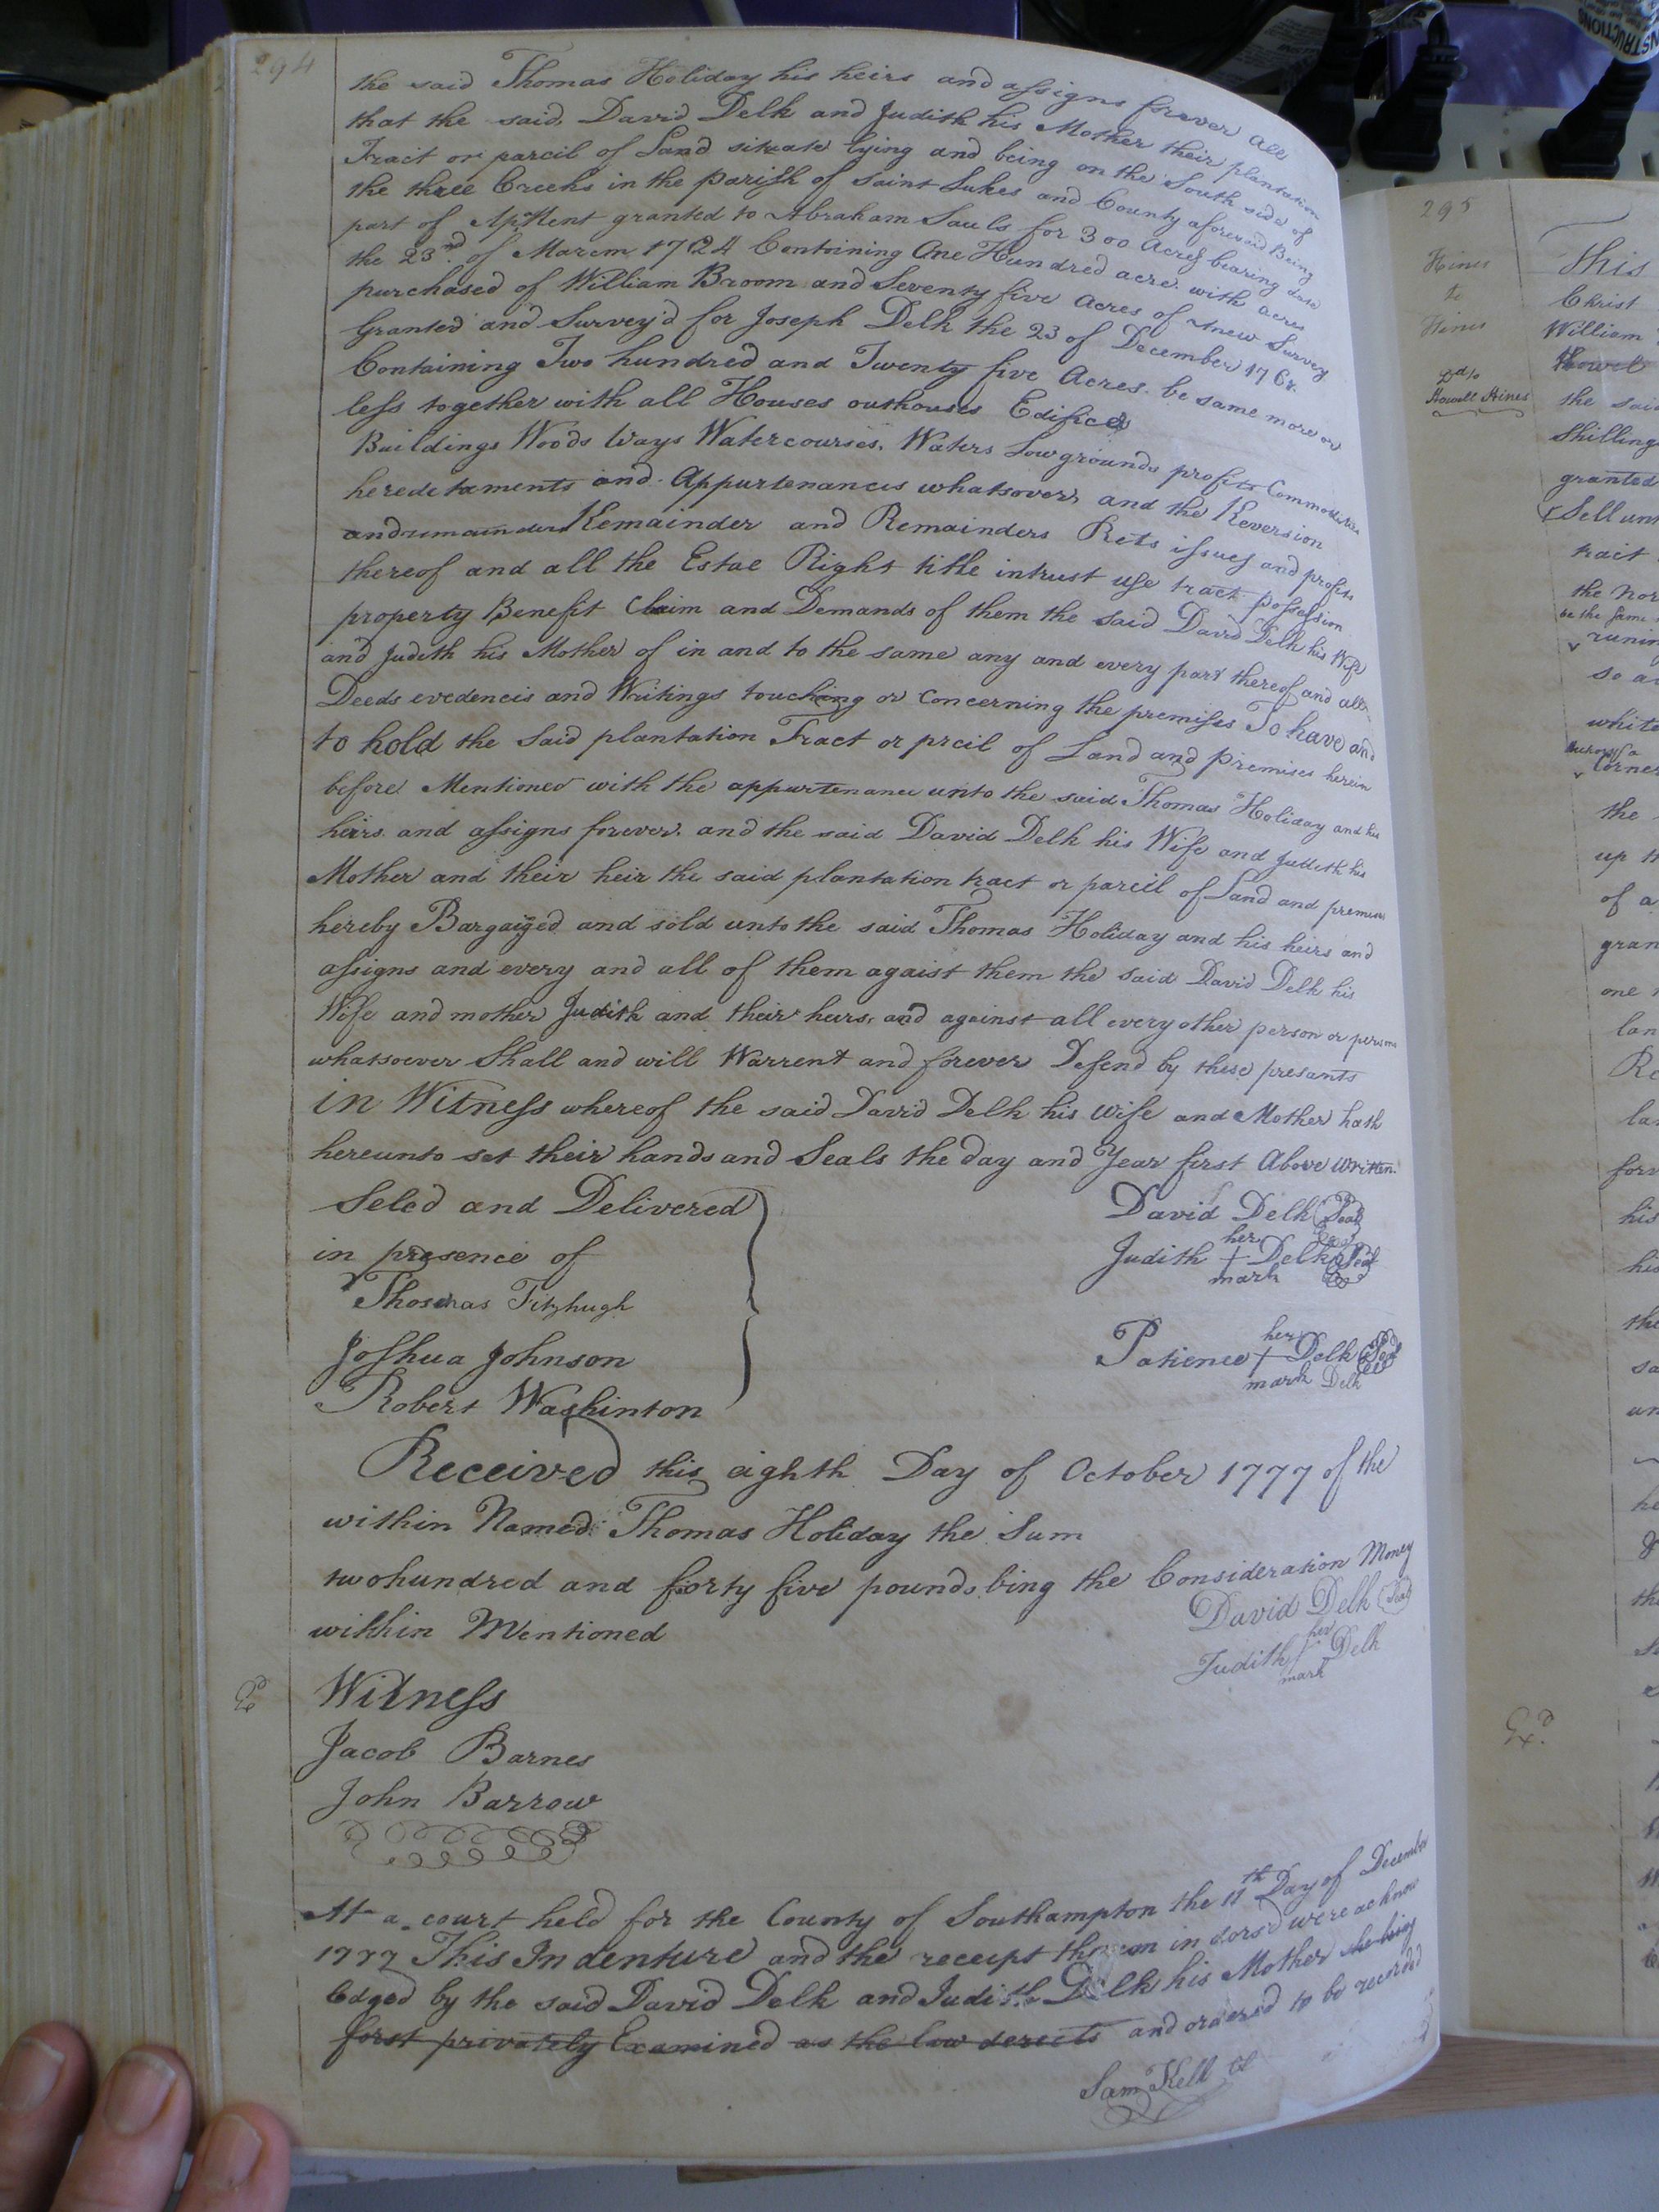 294
the said Thomas Holiday his heirs and assigns forever all
that the said David Delk and Judith his Mother their plantation
Tract or parcil of Land situate lying and being on the South side of
the three Creeks in the parish of Saint Lukes and County aforesaid Being
part of granted to Abraham Sauls for 300 Acres bearing date
the 23rd of 1724 Containing One Hundred acre with acres
purchased of William Broom and Seventy five Acres of new Survey
Granted and Survey'd for Joseph Delk the 23 of December
Containing Two hundred and Twenty five Acres be same more or
less together with all Houses outhouses Edifices
Buildings Woods Ways Watercourses, Waters Lowgrounds profits Commodities
heredetaments and Appurtenances whatsover, and the Reversion
and remainders Remainder and Remainders Rets issues and profits
thereof and all the Estae Right title intrust use tract possession
property Benefit Claim and Demands of them the said David Delk his Wife
and Judith his Mother of in and to the same any and every part thereof and all
Deeds evedencis and Writings touching or Concerning the premisses To have and
to hold the said plantation Tract or prcil of Land and premises herein
before Mentioned with the appurtenance unto the said Thomas Holiday and his
heirs and assigns forever. and the said David Delk his Wife and Judith his
Mother and their heir the said plantation tract or parcil of Land and premises
hereby and sold unto the said Thomas Holiday and his heirs and
assigns and every and all of them agaist them the said David Delk his
Wife and mother Judith and their heirs, and against all every other person or persons
whatsoever Shall and will Warrent and forever Defend by these presants
in Witness whereof the said David Delk his wife and Mother hath
hereunto set their hands and Seals the day and Year first Above written.
Seled and Delivered
in presence of
Thosmas Fitzhugh
Joshua Johnson
Robert Washinton
David Delk Seal
her
Judith + Delk Seal
mark
her
Patience + Delk Seal
mark Delk
Received this eighth Day of October 1777 of the
within Named Thomas Holiday the Sum
twohundred and forty five pounds bing the Consideration Money
within Mentioned
David Delk Seal
her
Judith Delk
mark
Witness
Jacob Barnes
John Barrow
At a court held for the County of Southampton the 11th Day of December
1777 This Indenture and the receipt thereon indorsd were acknow
ledged by the said David Delk and Judith Delk his Mother she being
first privately Examined as the law derects and ordered to be recorded
Sam Kello Cl
295
Hines
to
Hines
Dd to
Howell Hines
This
Christ
William
Howel
the said
Shilling
granted
Sell unt
tract
the nor
be the same
runin
so a
white
corner
the
up th
of a
gran
one
lan
Re
la
forv
his
his
the
sa
un
he
&
the
Exd.